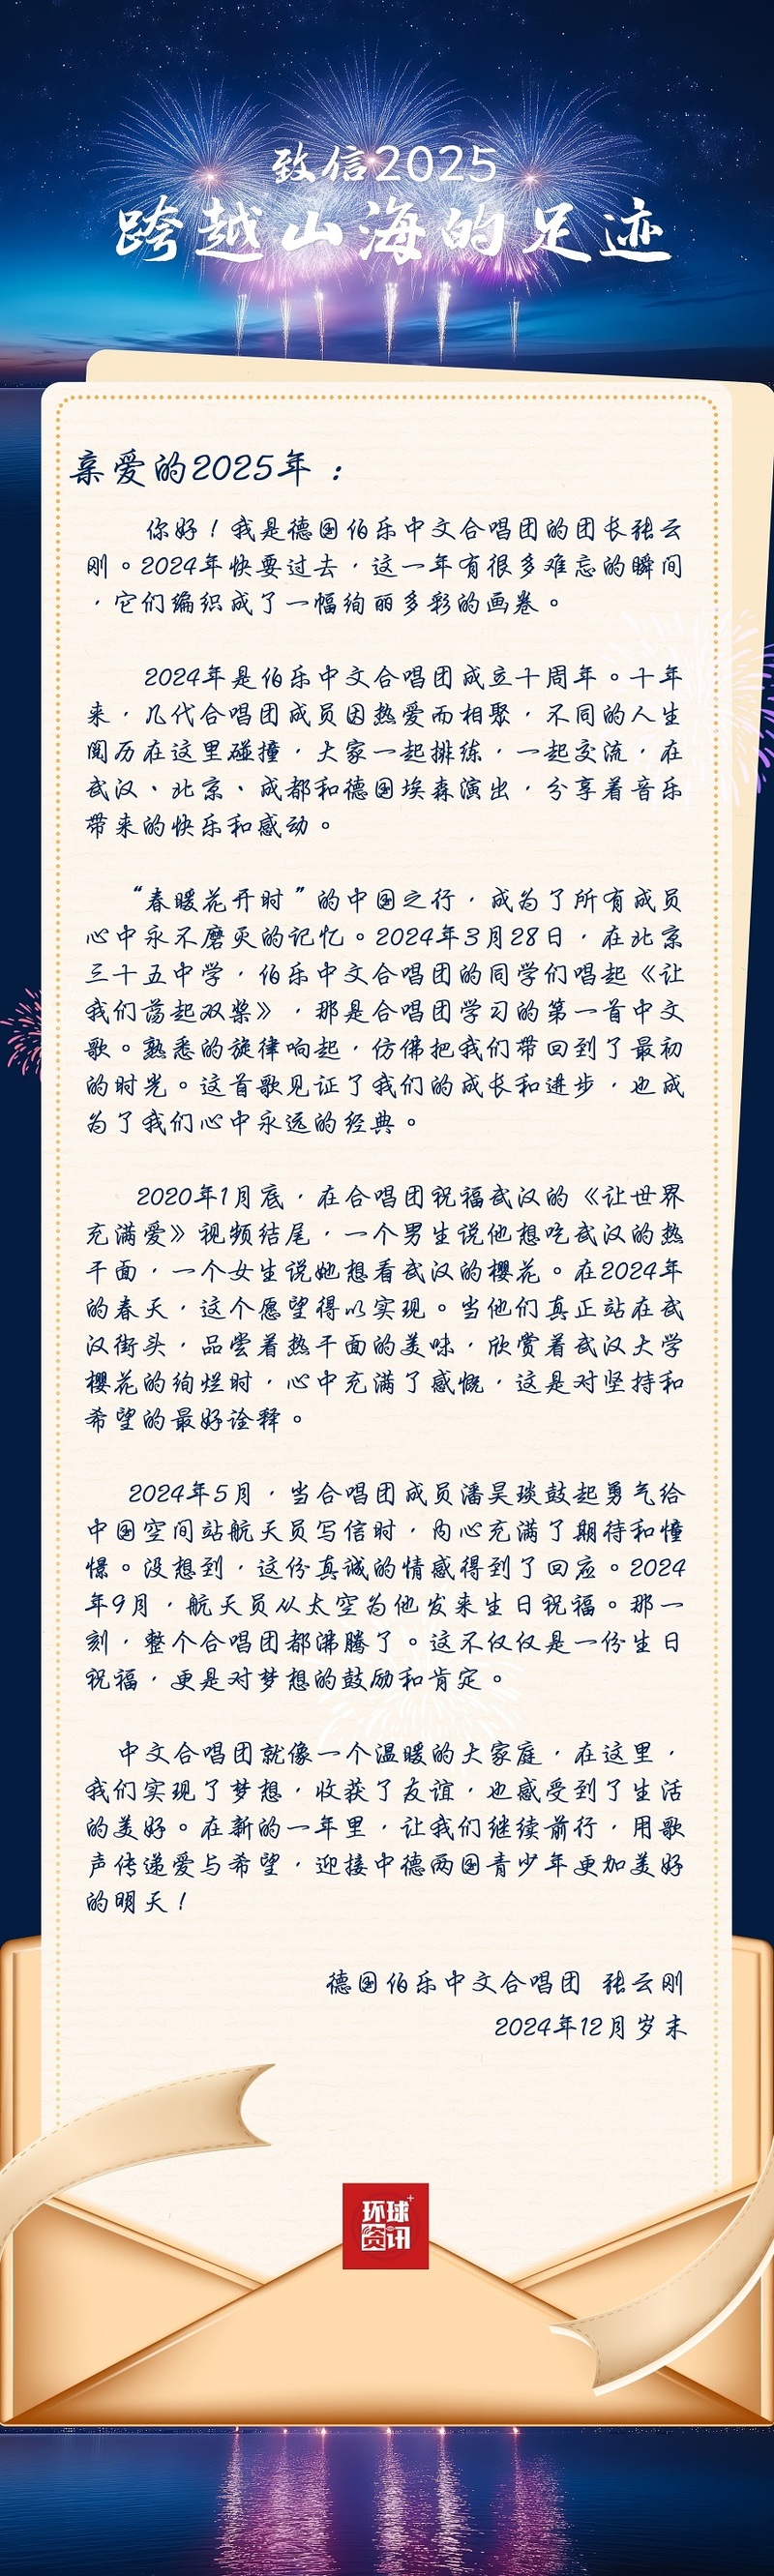 致信2025
跨越山海的足迹
亲爱的2025年：
你好！我是德国伯乐中文合唱团的团长张云
刚。2024年快要过去，这一年有很多难忘的瞬间
，它们编织成了一幅绚丽多彩的画卷。
2024年是伯乐中文合唱团成立十周年。十年
来，几代合唱团成员因热爱而相聚，不同的人生
阅历在这里碰撞，大家一起排练，一起交流，在
武汉、北京、成都和德国埃森演出，分享着音乐
带来的快乐和感动。
“春暖花开时”的中国之行，成为了所有成员
心中永不磨灭的记忆。2024年3月28日，在北京
三十五中学，伯乐中文合唱团的同学们唱起《让
我们荡起双桨》，那是合唱团学习的第一首中文
歌。熟悉的旋律响起，仿佛把我们带回到了最初
的时光。这首歌见证了我们的成长和进步，也成
为了我们心中永远的经典。
2020年1月底，在合唱团祝福武汉的《让世界
充满爱》视频结尾，一个男生说他想吃武汉的热
干面，一个女生说她想看武汉的樱花。在2024年
的春天，这个愿望得以实现。当他们真正站在武
汉街头，品尝着热干面的美味，欣赏着武汉大学
樱花的绚烂时，心中充满了感慨，这是对坚持和
希望的最好诠释。
2024年5月，当合唱团成员潘昊琰鼓起勇气给
中国空间站航天员写信时，内心充满了期待和憧
憬。没想到，这份真诚的情感得到了回应。2024
年9月，航天员从太空为他发来生日祝福。那一
刻，整个合唱团都沸腾了。这不仅仅是一份生日
祝福，更是对梦想的鼓励和肯定。
中文合唱团就像一个温暖的大家庭，在这里，
我们实现了梦想，收获了友谊，也感受到了生活
的美好。在新的一年里，让我们继续前行，用歌
声传递爱与希望，迎接中德两国青少年更加美好
的明天！
德国伯乐中文合唱团 张云刚
2024年12月岁末
环球+
资讯